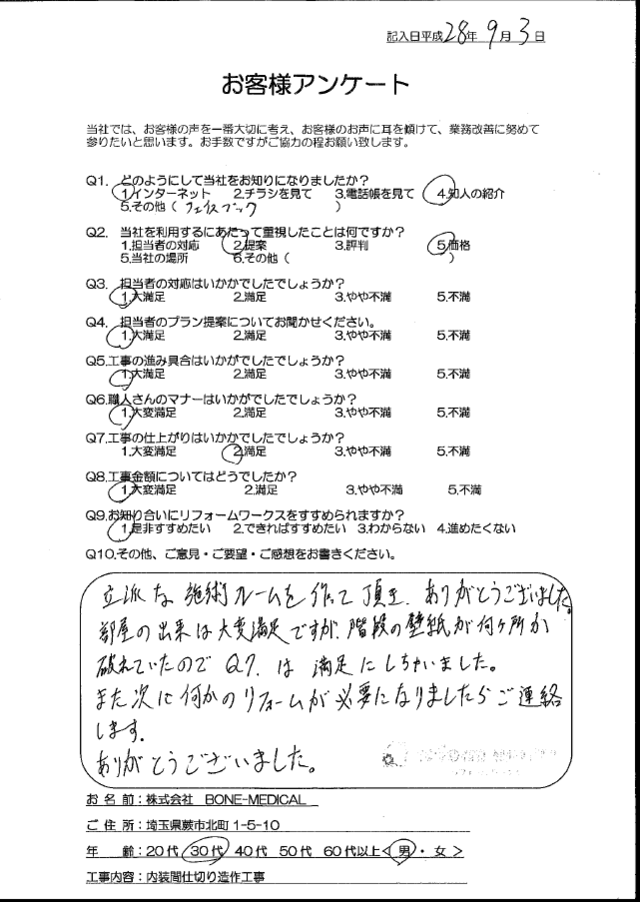 記入日平成28年9月3日
お客様アンケート
当社では、お客様の声を一番大切に考え、お客様のお声に耳を傾けて、業務改善に努めて
参りたいと思います。お手数ですがご協力の程お願い致します。
Q1. どのようにして当社をお知りになりましたか?
1.インターネット 2.チラシを見て 3.電話帳を見て 4.知人の紹介
5.その他（フェイスブック）
Q2. 当社を利用するにあたって重視したことは何ですか?
1.担当者の対応 2.提案 3.評判 5.価格
5.当社の場所 6.その他（ ）
Q3. 担当者の対応はいかがでしたでしょうか?
1.大満足 2.満足 3.やや不満 5.不満
Q4. 担当者のプラン提案についてお聞かせください。
1.大満足 2.満足 3.やや不満 5.不満
Q5.工事の進み具合はいかがでしたでしょうか?
1.大満足 2.満足 3.やや不満 5.不満
Q6.職人さんのマナーはいかがでしたでしょうか?
1.大変満足 2.満足 3.やや不満 5.不満
Q7.工事の仕上がりはいかがでしたでしょうか?
1.大変満足 2.満足 3.やや不満 5.不満
Q8.工事金額についてはどうでしたか?
1.大変満足 2.満足 3.やや不満 5.不満
Q9.お知り合いにリフォームワークスをすすめられますか?
1.是非すすめたい 2.できればすすめたい 3.わからない 4.進めたくない
Q10.その他、ご意見・ご要望・ご感想をお書きください。
立派な施術ルームを作って頂き、ありがとうございました。
部屋の出来は大変満足ですが、階段の壁紙が何ヶ所か
破れていたのでQ7.は満足にしちゃいました。
また次に何かのリフォームが必要になりましたらご連絡
します。
ありがとうございました。
お名前：株式会社 BONE-MEDICAL
ご住所：埼玉県蕨市北町1-5-10
年 齢：20代 30代 40代 50代 60代以上＜男・女＞
工事内容：内装間仕切り造作工事